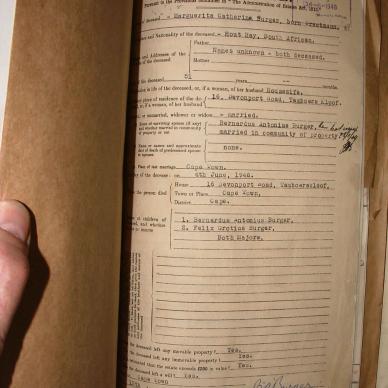 Pursuant to the Provisions contained in "The Administration of Estates Act, 1913"
deceased - Marguerita Catherine Burger, born
ace and Nationality of the deceased - Hout Bay, South African.
Father
Names and Addresses of the
Names unknown - both deceased.
of the deceased
Mother
the deceased
51 years months.
in life of the deceased, or, if a woman, of her husband Housewife.
place of residence of the de- 16, Devonport Road, Tamboers Kloof.
or, if a woman, of her husband
unmarried, widower or widow - married.
Name of surviving spouse (if any)
and whether married in community
of property or not
Bernardus Antonius Burger,
married in community of property
Name or names and approximate
date of death of predeceased spouse
or spouses
none.
Place of last marriage Cape Town.
day of the decease: on 4th June, 1948.
the person died
House 16 Devonport Road, Tamboerskloof,
Town or Place Cape Town,
District Cape.
of children of
deceased, and whether
or minors
1. Bernardus Antonius Burger.
2. Felix Grotius Burger.
Both Majors.
deceased left any movable property? Yes.
deceased left any immovable property? Yes.
estimated that the estate exceeds £300 in value? Yes.
the deceased left a will? Yes.
Cape Town